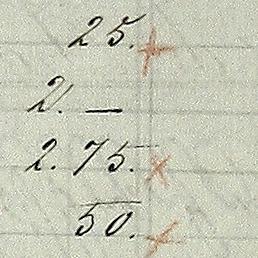 25.
2. —
2.75.
50.